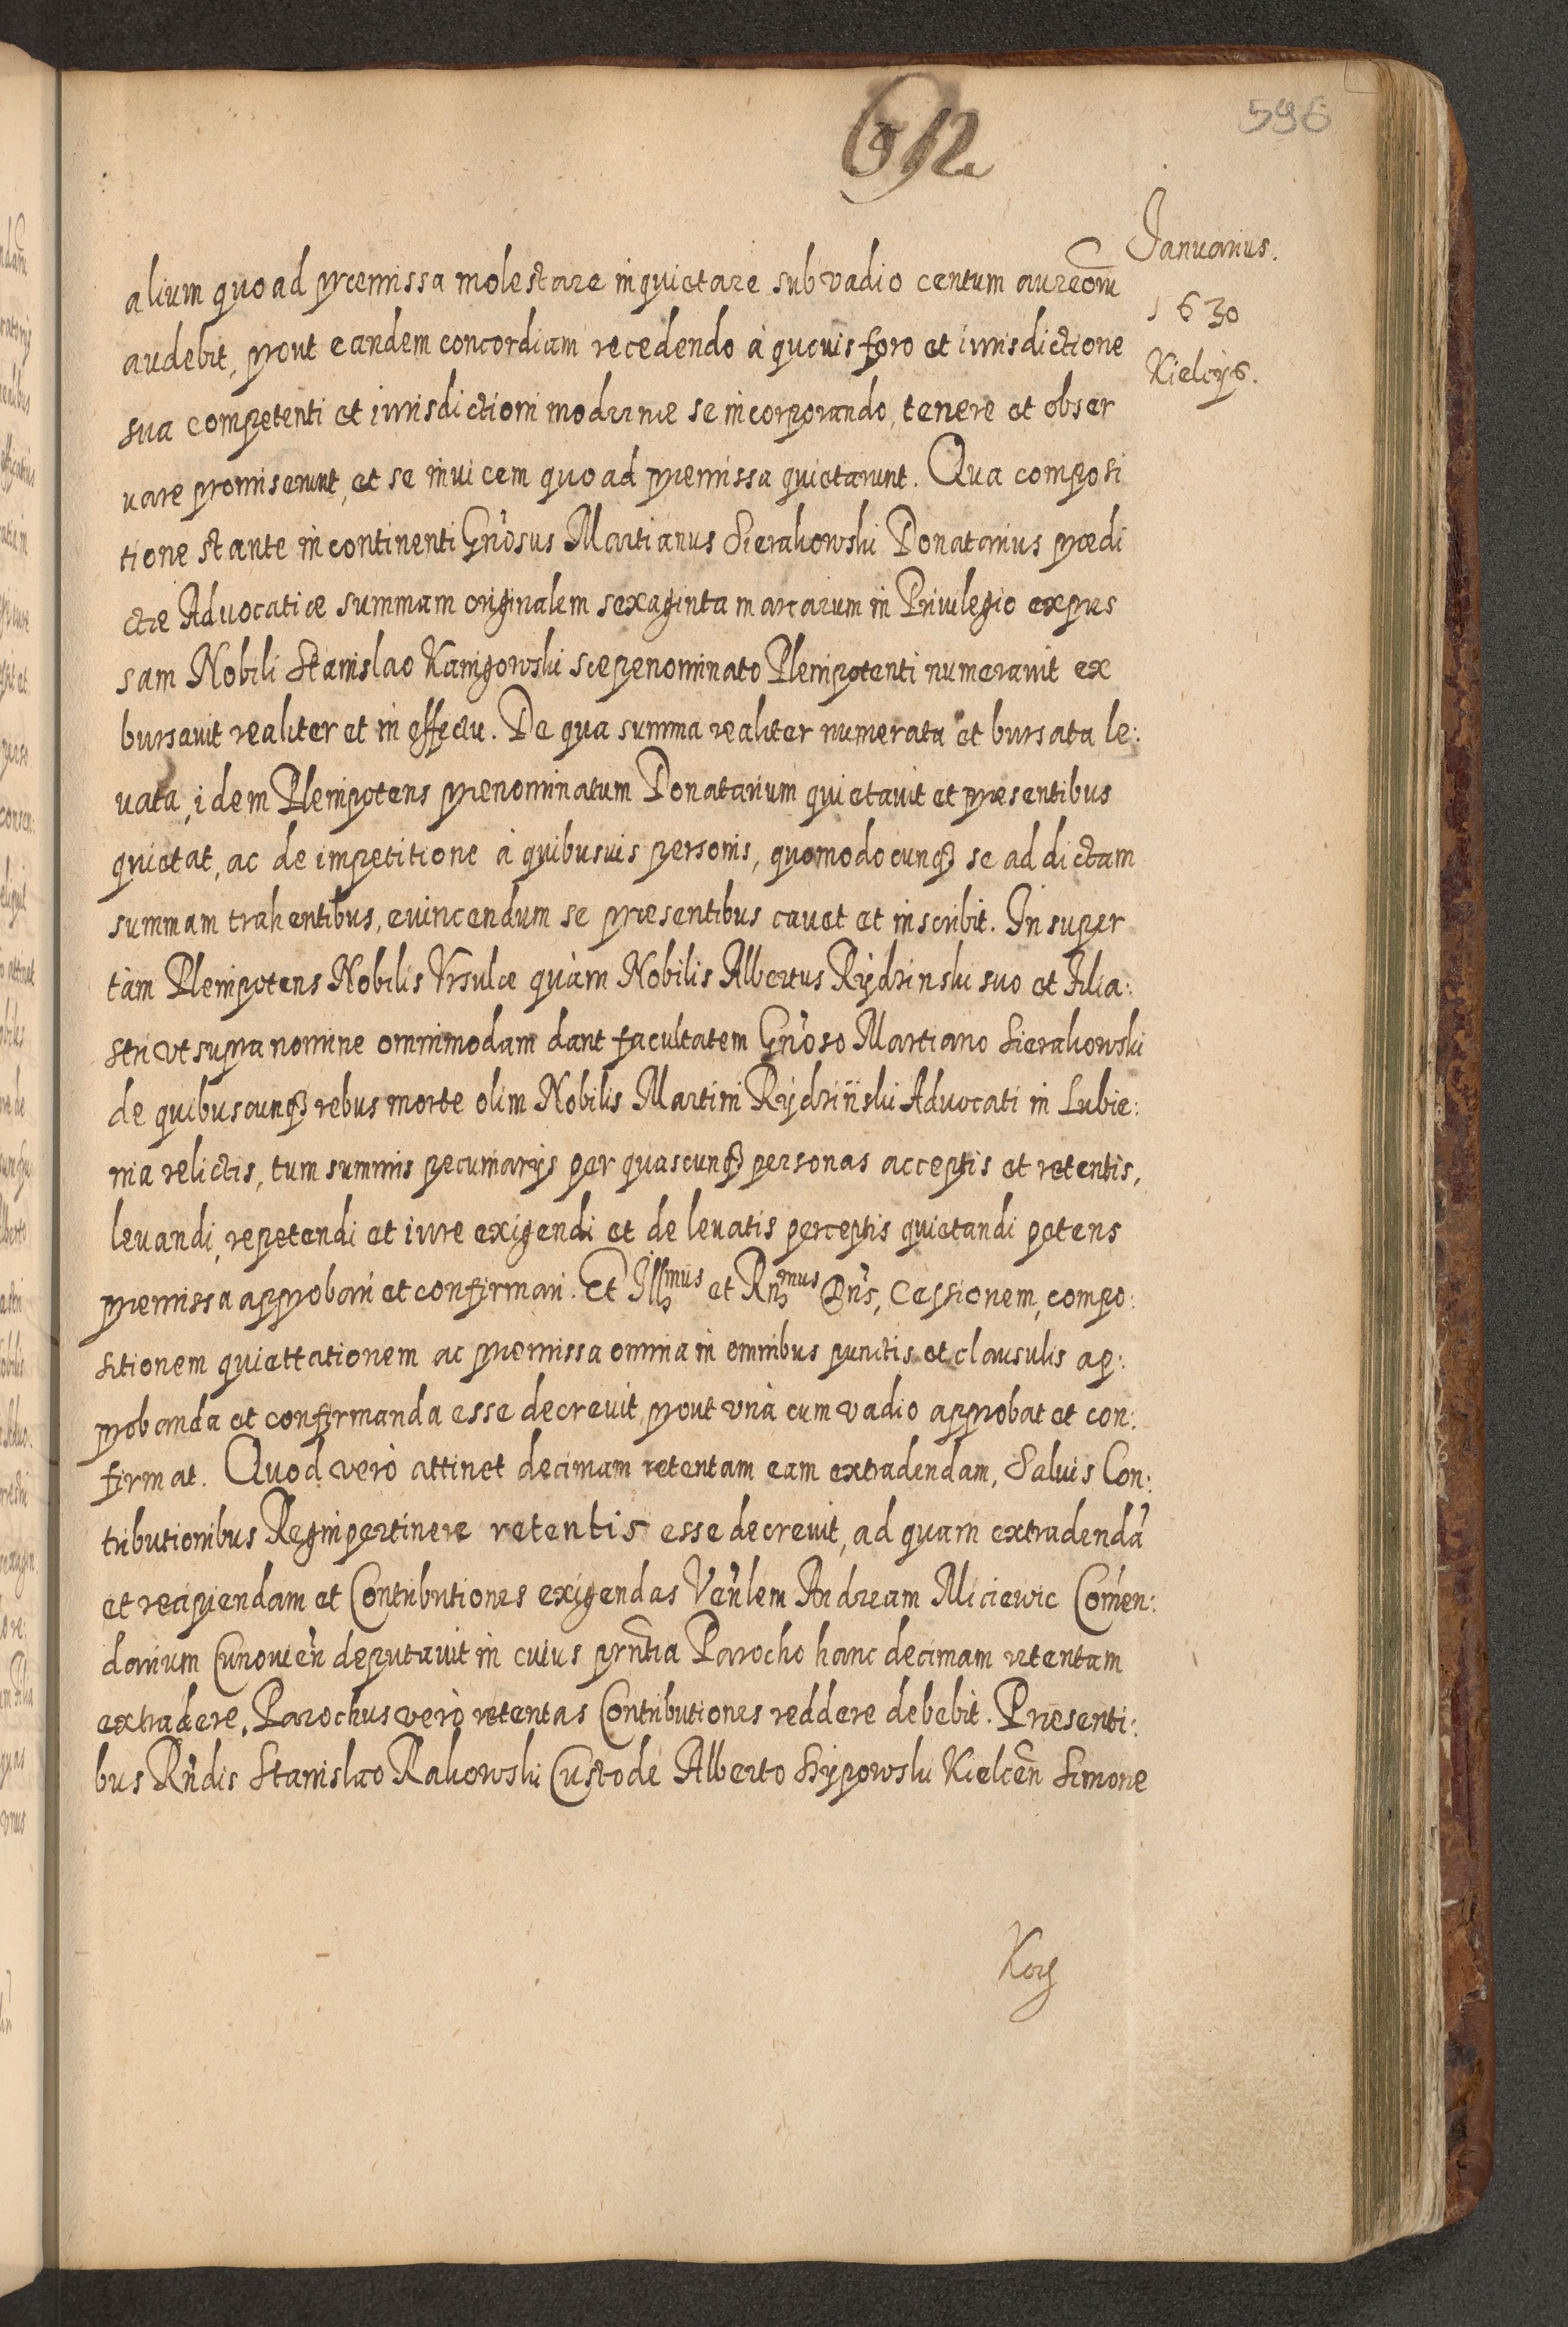 596
592
Januarius.
1630
Kielcijs.
alium quo ad præmissa molestare inquietare sub vadio centum aureorũ
audebit, prout eandem concordiam recedendo à quouis foro et iurisdictione
sua competenti et iurisdictioni modernæ se incorporando, tenere et obser
uare promiserunt, et se inuicem quo ad præmissa quietarunt. Qua composi
tione stante in continenti Gn̉osus Martianus Sierakowski Donatarius prædi
ctæ Advocatiæ summam originalem sexaginta marcarum in Priuilegio expres
sam Nobili Stanislao Kanigowski sæpenominato Plenipotenti numerauit ex
bursauit realiter et in effectu. De qua summa realiter numerata et bursata le:
uata, idem Plenipotens prænominatum Donatarium quietauit et præsentibus
quietat, ac de impetitione à quibusuis personis, quomodocunqȝ se ad dictam
summam trahentibus, euincendum se præsentibus cauet et inscribit. Insuper
tàm Plenipotens Nobilis Vrsulæ quàm Nobilis Albertus Rydzinski suo et Filia:
stri vt supra nomine omnimodam dant facultatem Gn̉oso Martiano Sierakowski
de quibuscunqȝ rebus morte olim Nobilis Martini Rydziński Aduocati in Lubie:
nia relictis, tum summis pecuniarijs per quascunqȝ personas acceptis et retentis,
leuandi, repetendi et iure exigendi et de leuatis perceptis quietandi petens
præmissa approbari et confirmari. Et Illmus et Rnmus Dn̉s, Cessionem, compo:
sitionem quiettationem ac præmissa omnia in omnibus punctis et clausulis ap:
probanda et confirmanda esse decreuit, prout vnà cum vadio approbat et con:
firmat. Quod verò attinet decimam retentam eam extradendam, Saluis Con:
tributionibus Regni pertinere retentis esse decreuit, ad quam extradendã
et recipiendam et Contributiones exigendas Ven̉lem Andream Miciewic Com̃en:
darium Cunouień deputauit in cuius prn̄tia Parocho hanc decimam retentam
extradere. Parochus verò retentas Contributiones reddere debebit. Præsenti:
bus Rn̉dis Stanislao Rakowski Custode Alberto Sypowski Kielceñ Simone